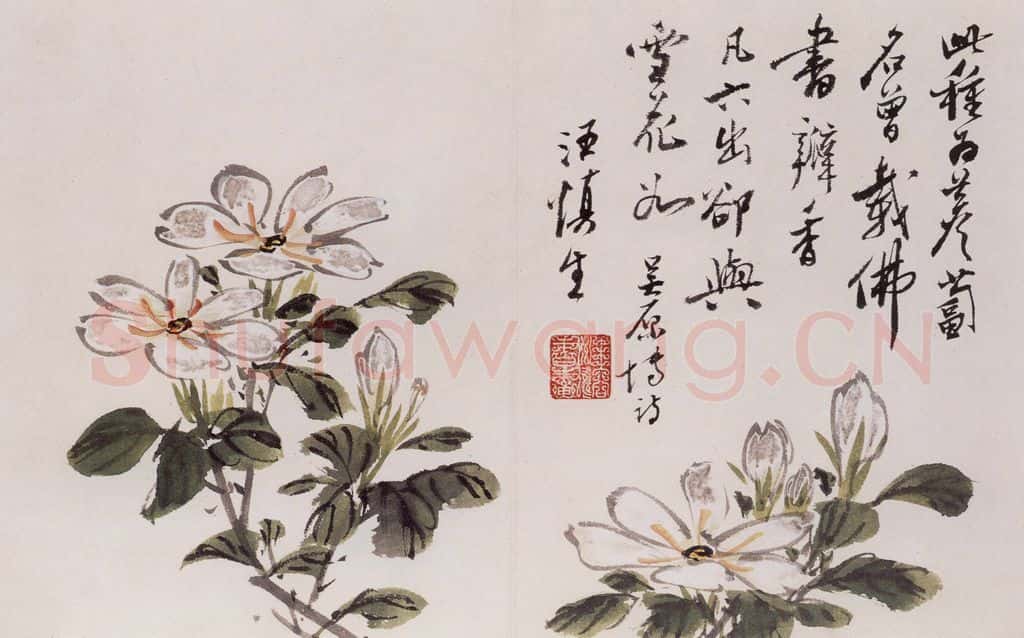 此種为薝蔔
名曾載佛
書瓣香
凡六出卻與
雪花如 吳原博詩
汪慎生
Shufawang.CN